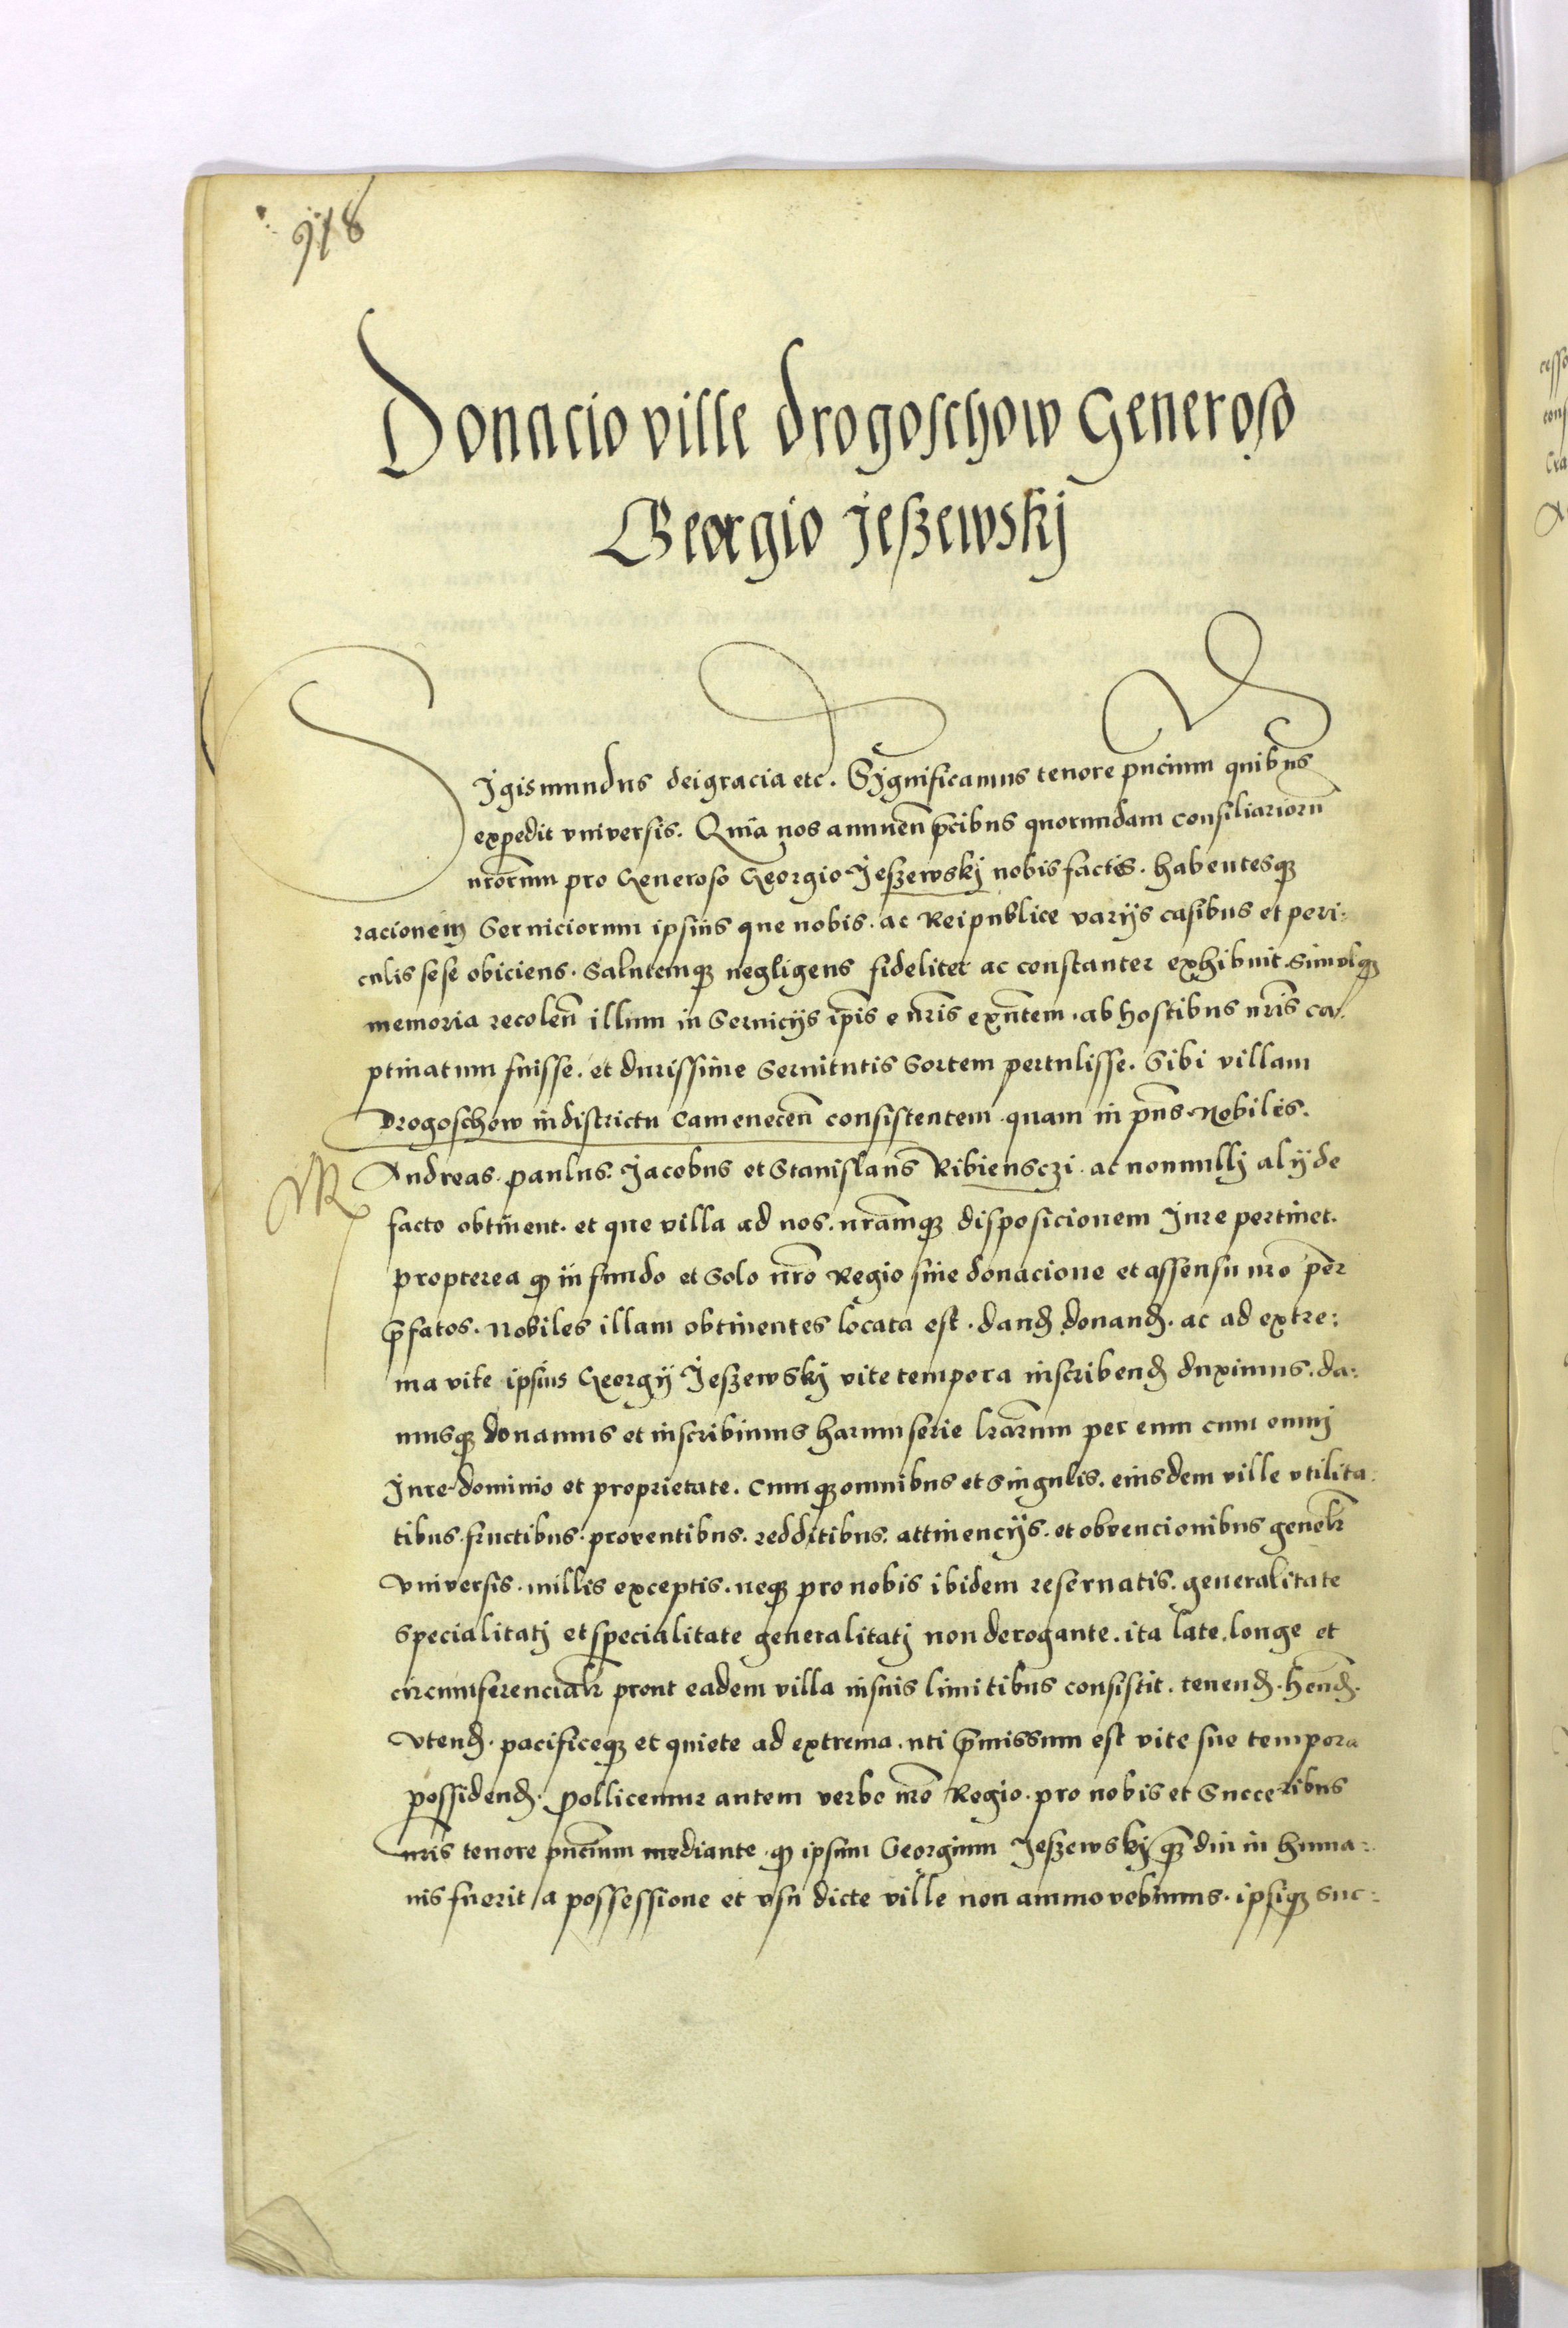 918
Donacio ville Drogoschow Generoso
Georgio Jeszewskj
Sigismundus dei gracia etc. Significamus tenore pñcium quibus
expedit vniversis. Quia nos annuen̄ p̄cibus quorundam consiliariorū
nr̄orum pro Generoso Georgio Jeszewskj nobis factis. habentesqꝫ
racionem Serviciorum ipsius que nobis. ac Reipublice varijs casibus et peri:
culis sese obiciens. Salutemqꝫ negligens fideliter ac constanter exhibuit. Simulqꝫ
memoria recolen̄ illum in Servicijs ip̄is e nr̄is exn̄tem. ab hostibus nr̄is ca:
ptivatum fuisse. et durissime Servitutis Sortem pertulisse. Sibi villam
Drogoschow in districtu Camenecen̄ consistentem. quam in p̄ns Nobiles.
Andreas. paulus. Jacobus et Stanislaus Ribiensczi. ac nonnullj alij de
facto obtinent. et que villa ad nos. nr̄amqꝫ disposicionem Jure pertinet.
propterea qꝫ in fundo et Solo nr̄o Regio sine donacione et assensu nr̄o per
p̄fatos. Nobiles illam obtinentes locata est. dand̄ donand̄. ac ad extre:
ma vite ipsius Georgij Jeszewskj vite tempora inscribend̄ duximus. da:
musqꝫ donamus et inscribimus harum serie lr̄arum per eum cum omnj
Jure dominio et proprietate. Cumqꝫ omnibus et Singulis. eiusdem ville vtilita:
tibus. fructibus. proventibus. redditibus. attinencijs. et obvencionibus gener̄lr
vniversis. nullis exceptis. neqꝫ pro nobis ibidem reservatis. generalitate
Specialitatj et specialitate generalitatj non derogante. ita late. longe et
circumferencialr̄ prout eadem villa in suis limitibus consistit. tenend̄. hn̄d̄.
vtend̄. pacificeqꝫ et quiete ad extrema. uti p̄missum est vite sue tempora
possidend̄. Pollicemur autem verbo nr̄o Regio. pro nobis et Succeribus
nr̄is tenore pn̄cium mediante. qꝫ ipsum Georgium Jeszewskj qꝫ diu in huma:
nis fuerit a possessione et vsu dicte ville non ammovebimus. ipsiqꝫ suc: